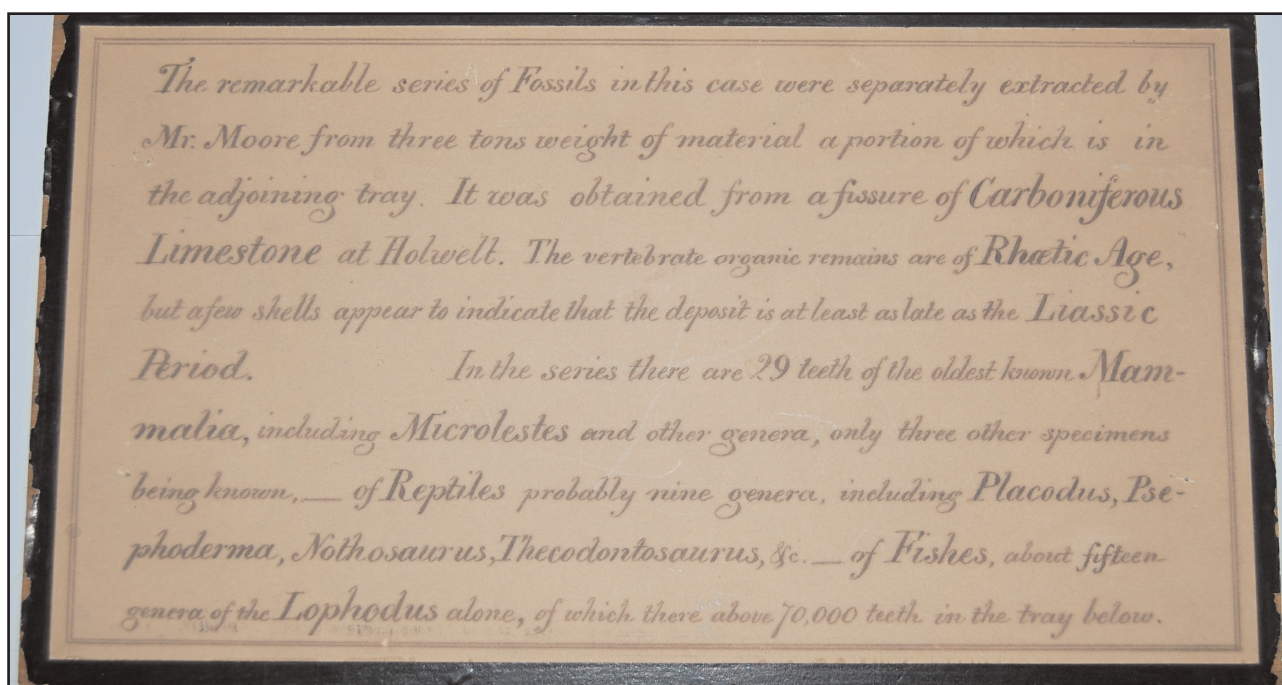 The remarkable series of Fossils in this case were separately extracted by
Mr. Moore from three tons weight of material a portion of which is in
the adjoining tray. It was obtained from a fissure of Carboniferous
Limestone at Holwelt. The vertebrate organic remains are of Rhætic Age,
but a few shells appear to indicate that the deposit is at least as late as the Liassic
Period. In the series there are 29 teeth of the oldest known Mam-
malia, including Microlestes and other genera, only three other specimens
being known, — of Reptiles probably nine genera, including Placodus, Pse-
phoderma, Nothosaurus, Thecodontosaurus, &c. — of Fishes, about fifteen
genera of the Lophodus alone, of which there above 70,000 teeth in the tray below.